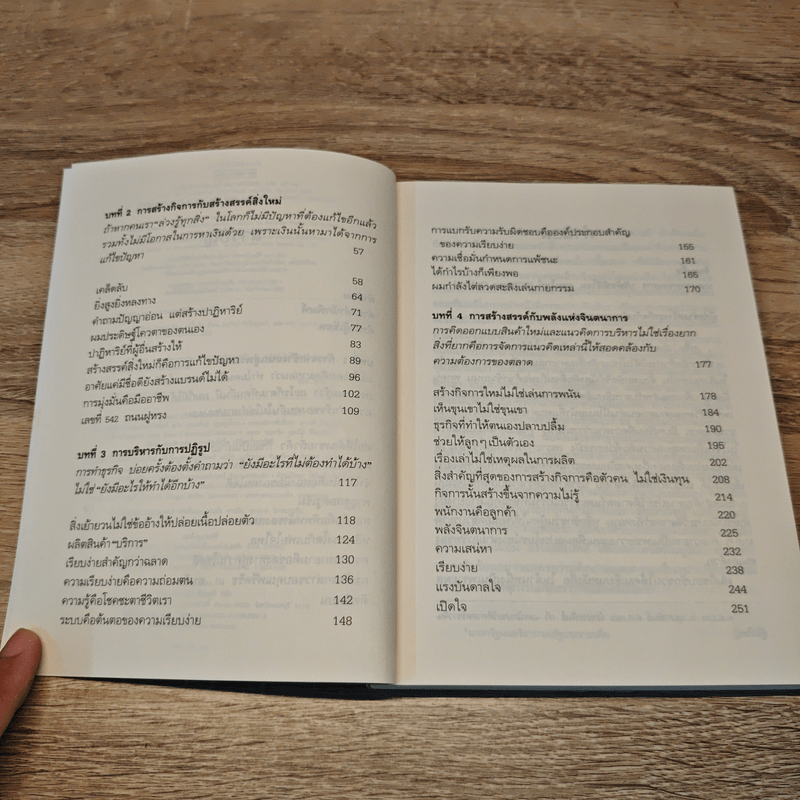 บทที่ 2 การสร้างกิจการกับสร้างสรรค์สิ่งใหม่
ถ้าหากคนเรา“ล่วงรู้ทุกสิ่ง” ในโลกก็ไม่มีปัญหาที่ต้องแก้ไขอีกแล้ว
รวมทั้งไม่มีโอกาสในการหาเงินด้วย เพราะเงินนั้นหามาได้จากการ
แก้ไขปัญหา 57
เคล็ดลับ 58
ยิ่งสูงยิ่งหลงทาง 64
คำถามปัญญาอ่อน แต่สร้างปาฏิหาริย์ 71
ผมประดิษฐ์โควตาของตนเอง 77
ปาฏิหาริย์ที่ผู้อื่นสร้างให้ 83
สร้างสรรค์สิ่งใหม่ก็คือการแก้ไขปัญหา 89
อาศัยแค่มีชื่อดียังสร้างแบรนด์ไม่ได้ 96
การมุ่งมั่นคือมืออาชีพ 102
เลขที่ 542 ถนนฝูหรง 109
บทที่ 3 การบริหารกับการปฏิรูป
การทำธุรกิจ บ่อยครั้งต้องตั้งคำถามว่า “ยังมีอะไรที่ไม่ต้องทำได้บ้าง”
ไม่ใช่ “ยังมีอะไรให้ทำได้อีกบ้าง” 117
สิ่งเย้ายวนไม่ใช่ข้ออ้างให้ปล่อยเนื้อปล่อยตัว 118
ผลิตสินค้า “บริการ” 124
เรียบง่ายสำคัญกว่าฉลาด 130
ความเรียบง่ายคือความถ่อมตน 136
ความรู้คือโชคชะตาชีวิตเรา 142
ระบบคือต้นตอของความเรียบง่าย 148
การแบกรับความรับผิดชอบคือองค์ประกอบสำคัญ
ของความเรียบง่าย 155
ความเชื่อมั่นกำหนดการแพ้ชนะ 161
ได้กำไรบ้างก็เพียงพอ 165
ผมกำลังไต่ลวดสะลิงเล่นกายกรรม 170
บทที่ 4 การสร้างสรรค์กับพลังแห่งจินตนาการ
การคิดออกแบบสินค้าใหม่และแนวคิดการบริหารไม่ใช่เรื่องยาก
สิ่งที่ยากคือการจัดการแนวคิดเหล่านี้ให้สอดคล้องกับ
ความต้องการของตลาด 177
สร้างกิจการใหม่ไม่ใช่เล่นการพนัน 178
เห็นขุนเขาไม่ใช่ขุนเขา 184
ธุรกิจที่ทำให้ตนเองปลาบปลื้ม 190
ช่วยให้ลูกๆ เป็นตัวเอง 195
เรื่องเล่าไม่ใช่เหตุผลในการผลิต 202
สิ่งสำคัญที่สุดของการสร้างกิจการคือตัวคน ไม่ใช่เงินทุน 208
กิจการนั้นสร้างขึ้นจากความไม่รู้ 214
พนักงานคือลูกค้า 220
พลังจินตนาการ 225
ความเสน่หา 232
เรียบง่าย 238
แรงบันดาลใจ 244
เปิดใจ 251